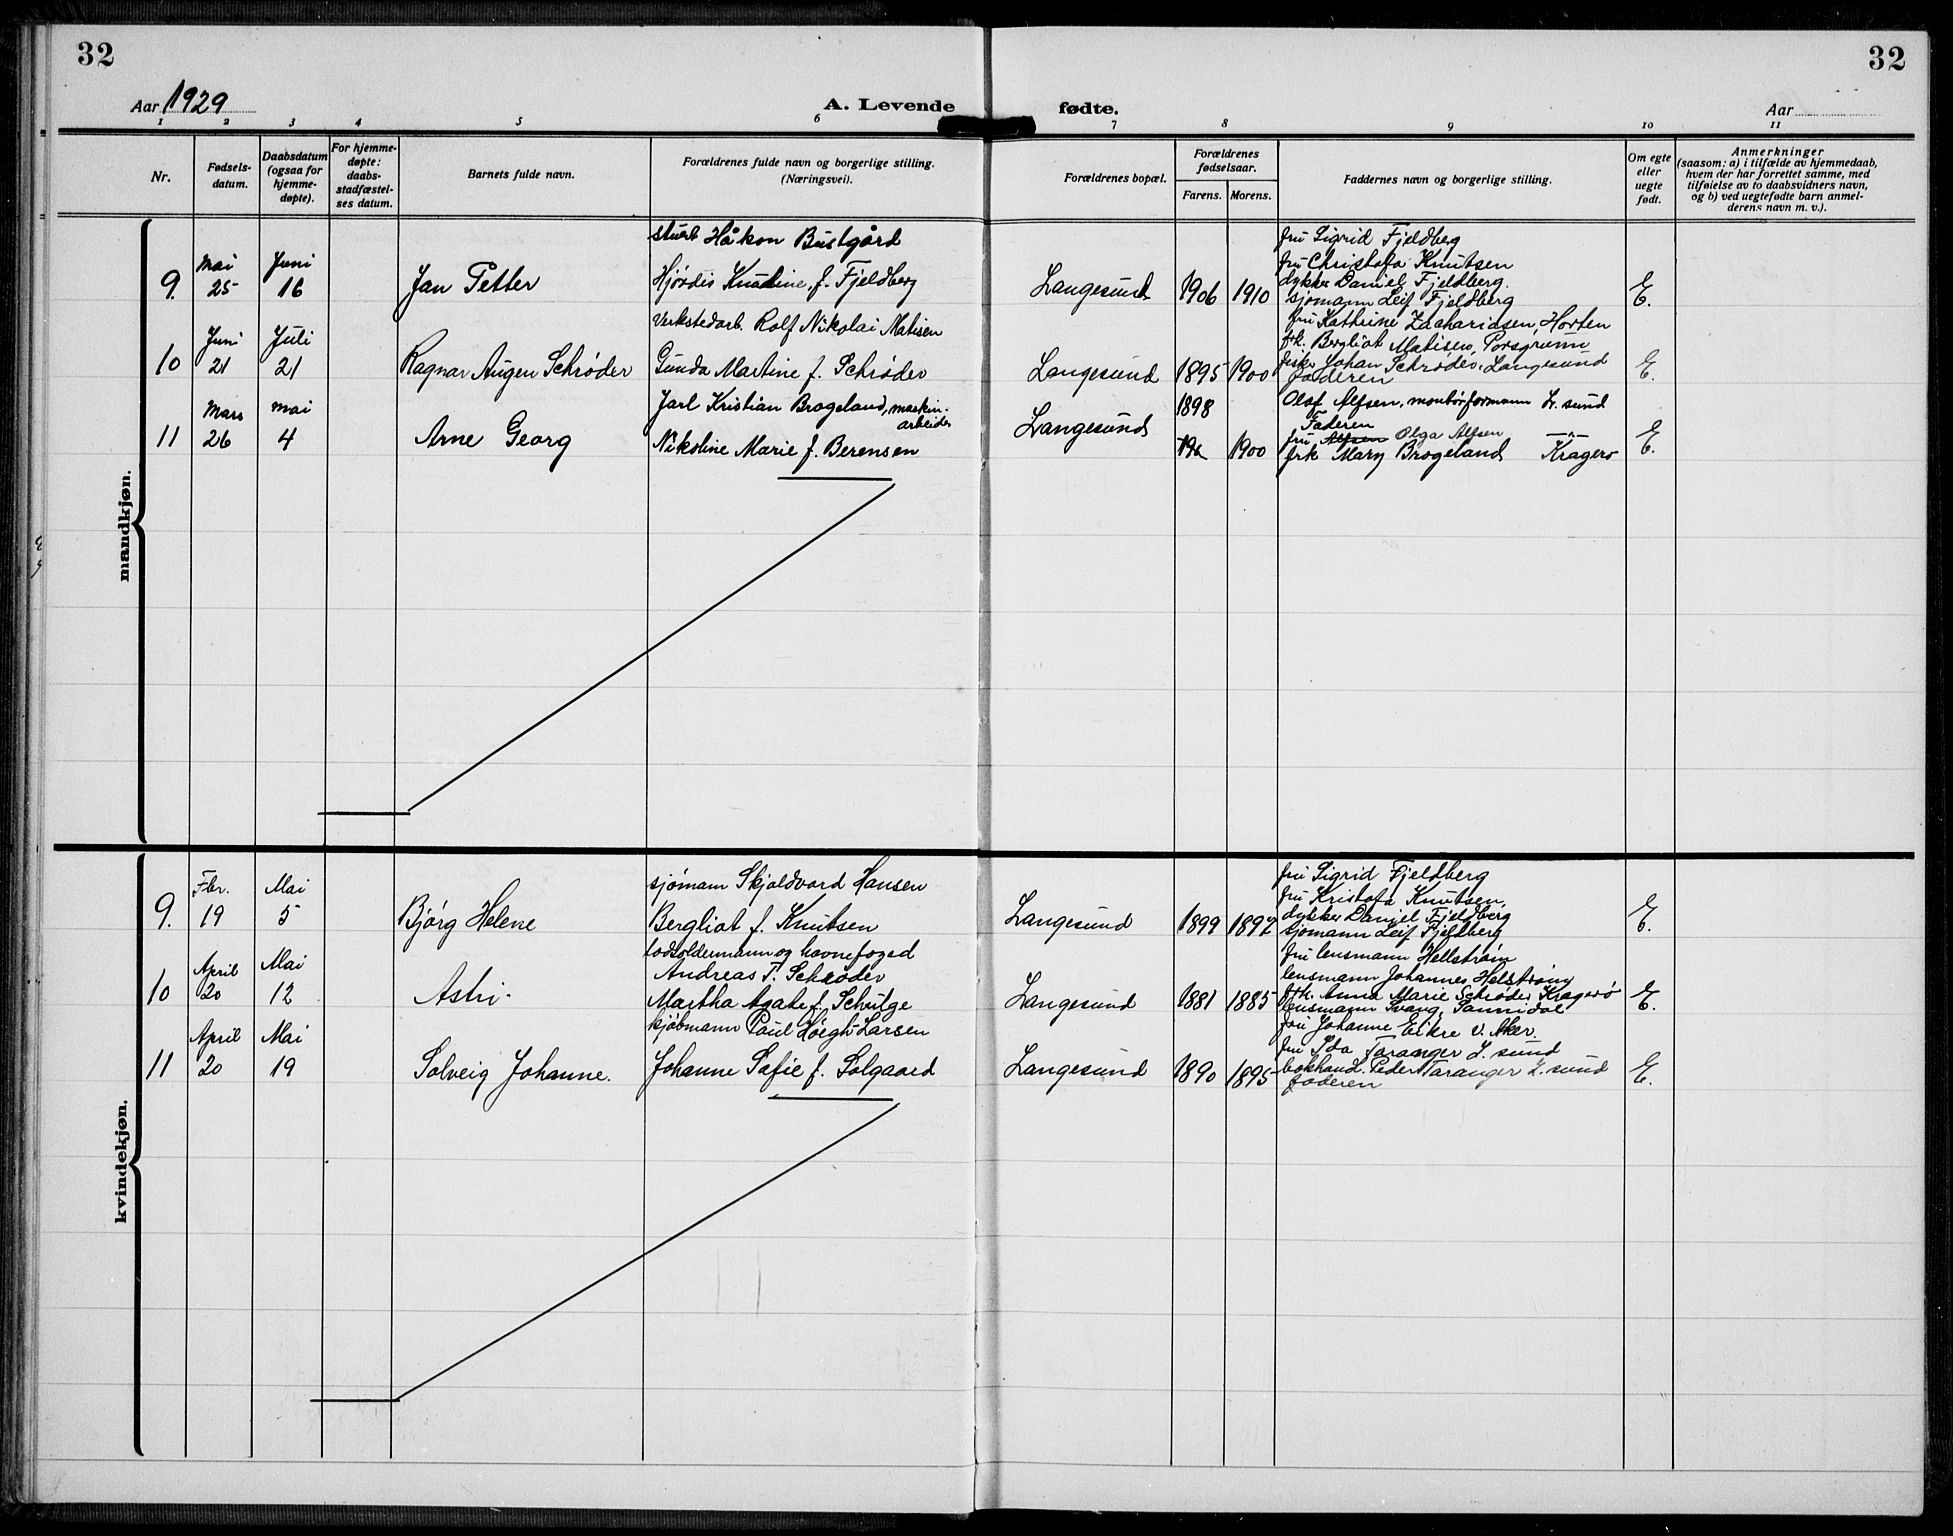 32
32
Aar 1929
A. Levende fødte.
Aar
1 2 3 4 5 6 7 8 9 10 11
Nr.
Fødsels-
datum.
Daabsdatum
(ogsaa for
hjemme-
døpte).
For hjemme-
døpte:
daabs-
stadfæstel-
ses datum.
Barnets fulde navn.
Forældrenes fulde navn og borgerlige stilling.
(Næringsvei).
Forældrenes bopæl.
Forældrenes
fødselsaar.
Farens. Morens.
Faddernes navn og borgerlige stilling.
Om egte
eller
uegte
født.
Anmerkninger
(saasom: a) i tilfælde av hjemmedaab,
hvem der har forrettet samme, med
tilføielse av to daabsvidners navn,
og b) ved uegtefødte barn anmel-
derens navn m. v.).
mandkjøn.
9.
Mai
25
Juni
16
Jan Petter
Håkon Bustgård
Hjørdis f. Fjeldberg
Langesund
1906 1910
fru Sigrid Fjeldberg
fru Christofa Knutsen
dykker Daniel Fjeldberg.
sjømann Leif Fjeldberg
E.
10
Juni
21
Juli
21
Ragnar Augen Schrøder
Verkstedarb. Rolf Nikolai Matisen
Gunda Martine f. Schrøder
Langesund
1895 1900
fru Kathrine Zachariasen, Horten
frk. Bergliot Matisen, Porsgrunn
fisker Johan Schrøder, Langesund
faderen
E.
11
Mars
26
mai
4
Arne Georg
Jarl Kristian Brogeland, maskin-
arbeider
Nikoline Marie f. Berensen
Langesund
1898
1900
Olaf Alfsen, montørformann L. sund
Faderen
fru Alfsen Olga Alfsen —"—
frk Mary Brogeland Kragerø
E.
kvindekjøn.
9.
Fbr.
19
Mai
5
Bjørg Helene
sjømann Skjoldvard Hansen
Bergliot f. Knutsen
Langesund
1899 1892
fru Sigrid Fjeldberg
fru Kristofa Knutsen,
dykker Daniel Fjeldberg
sjømann Leif Fjeldberg
E.
10
April
20
Mai
12
Astri
lodsoldermann og havnefoged
Andreas T. Schrøder
Martha Agate f. Schulge
Langesund
1881 1885
fru lensmann Hellstrøm
lensmann Johannes Helstrøm
frk. Anna Marie Schrøder Kragerø
lensmann Svang, Sannidal
E.
11
April
20
Mai
19
Solveig Johanne.
kjøbmann Poul Høegh-Larsen
Johanne Sofie f. Solgaard
Langesund
1890 1895
fru Johanne Eikre V. Aker
fru Ida Taranger L. sund
bokhand. Peder Taranger L. sund
faderen
E.